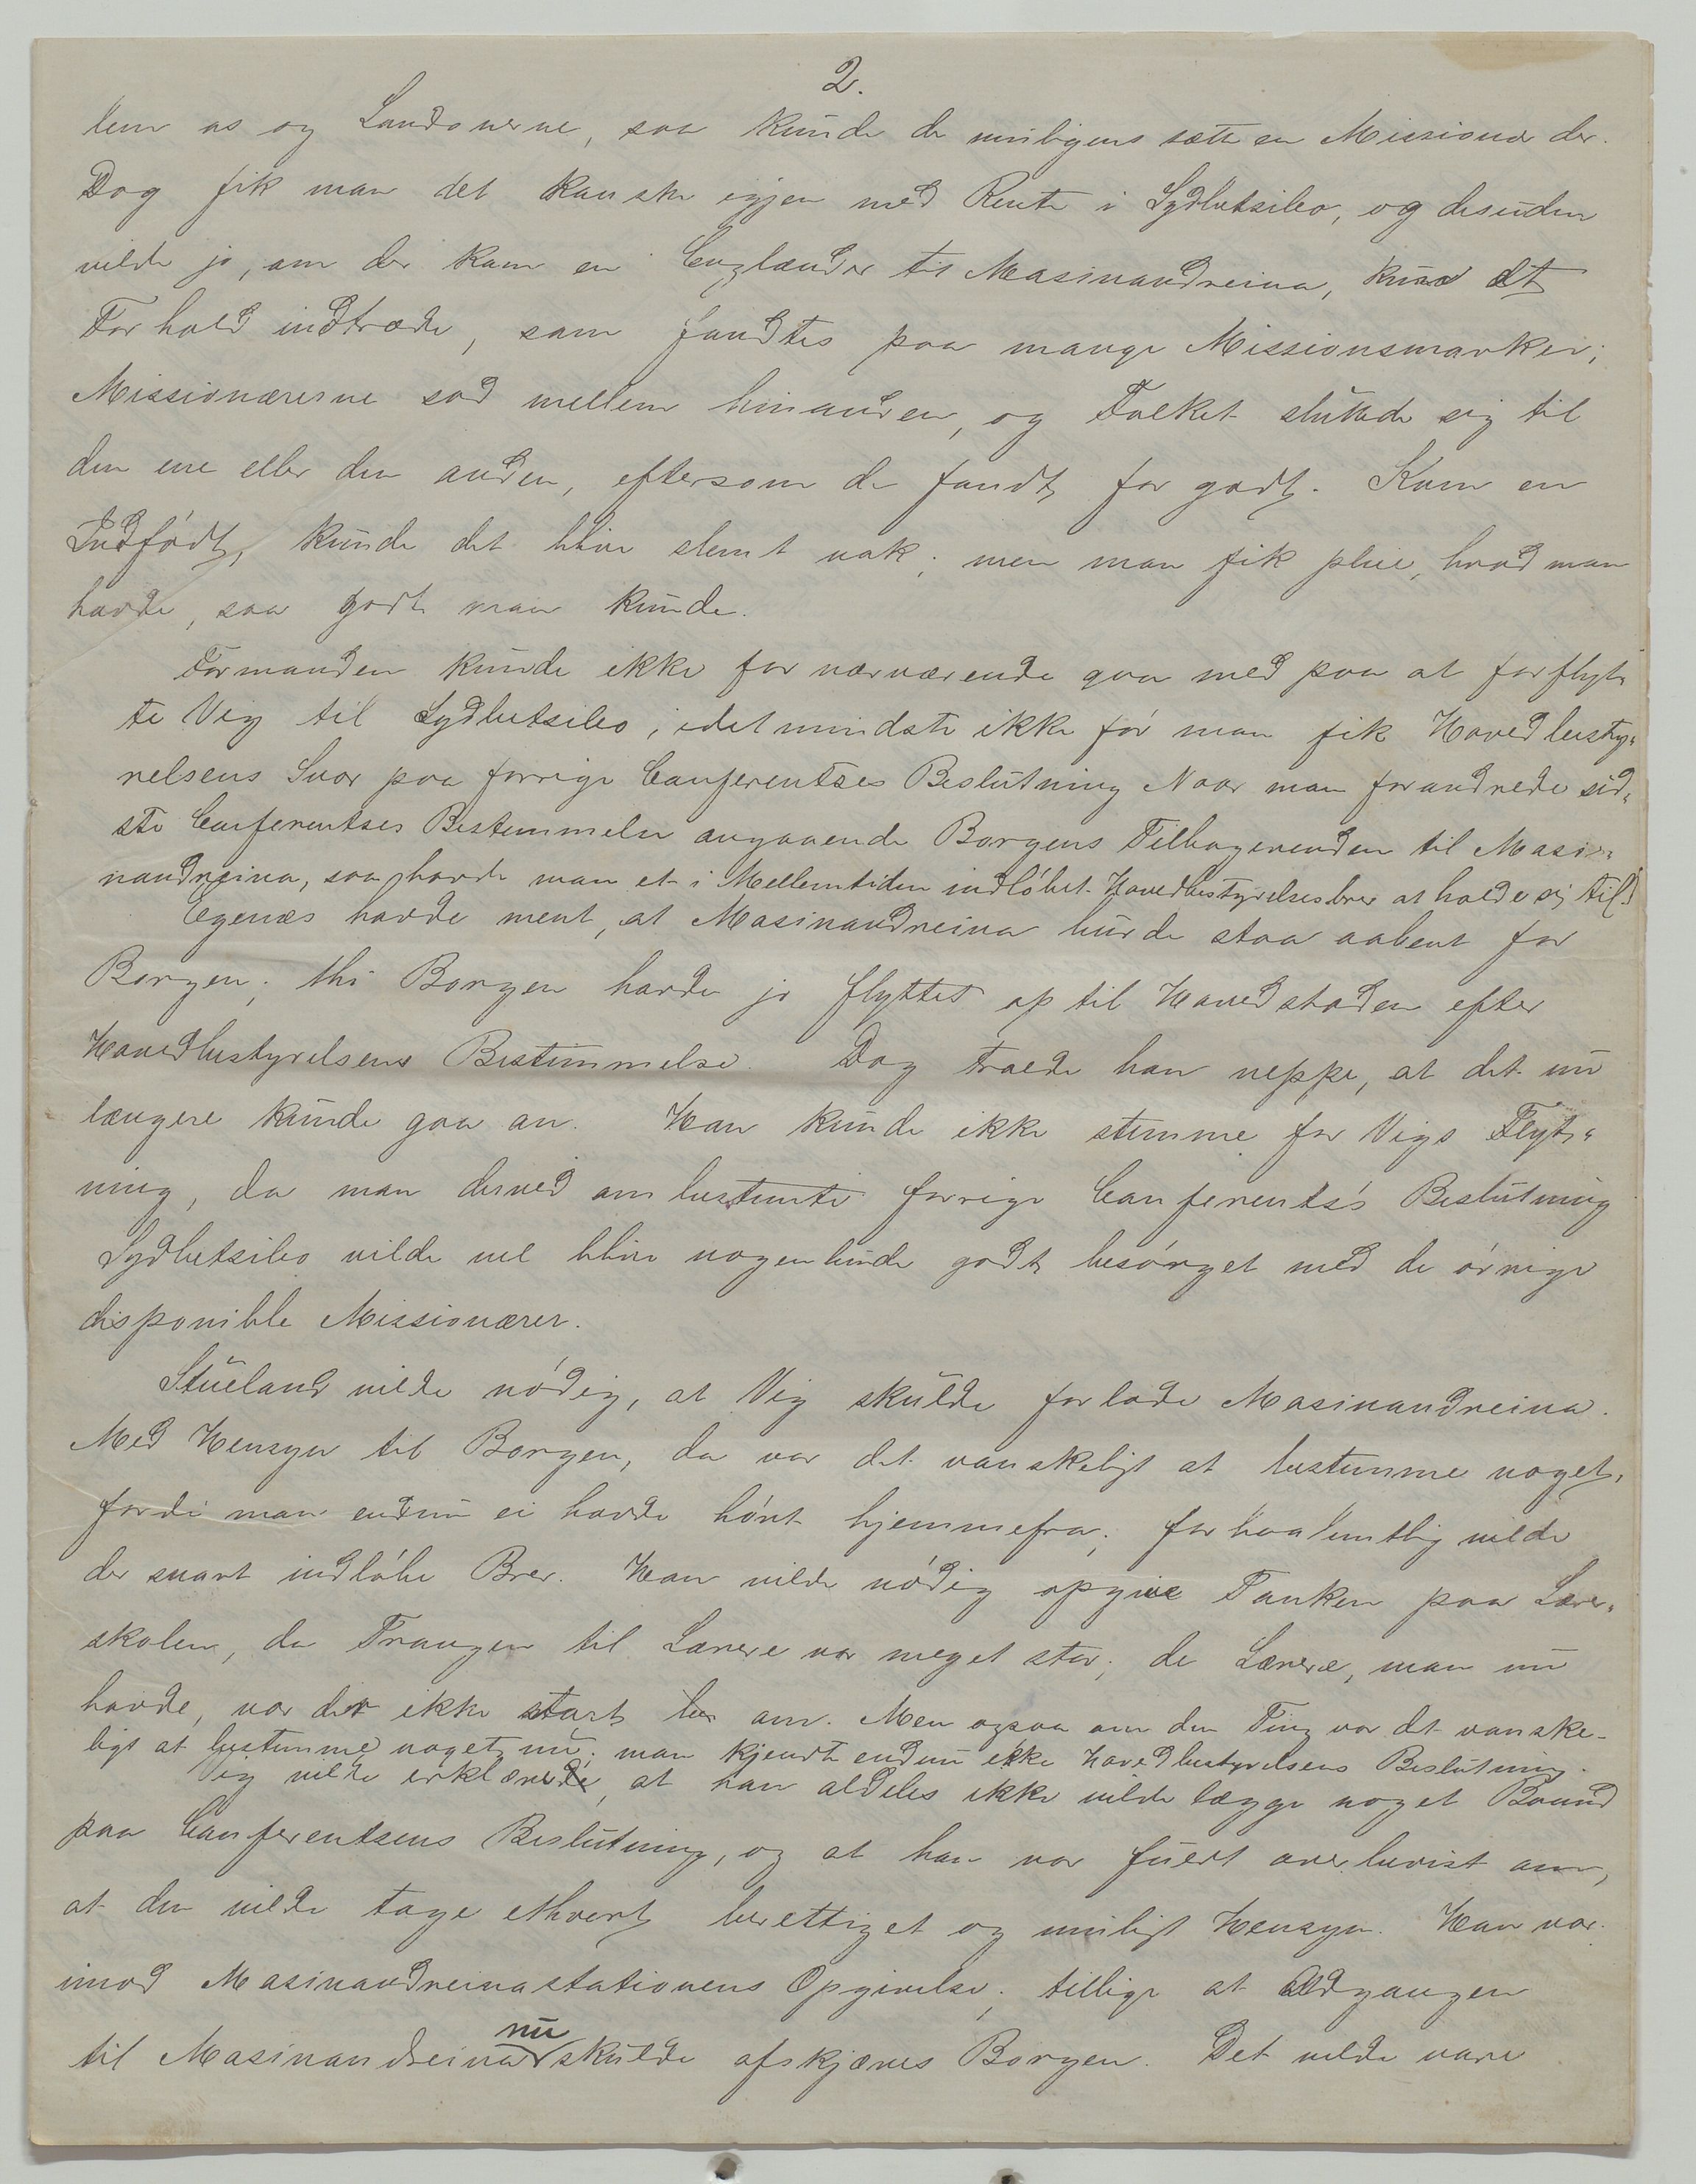 2.
lem os og Landonerne, saa kunde de muligens sætte en Missionær der.
Dog fik man det kanske igjen med Rente i Sydbetsileo, og desuden
vilde jo, om der kom en Englænder til Masinandreina, kun et
Forhold indtræde, som fandtes paa mange Missionsmarker;
Missionærerne sad mellem hinanden, og Folket sluttede sig til
den ene eller den anden, eftersom de fandt for godt. Kom en
Indfødt, kunde det blive slemt nok; men man fik pleie, hvad man
havde, saa godt man kunde.
Formanden kunde ikke for nærværende gaa med paa at forflyt-
te Vig til Sydbetsileo, idetmindste ikke før man fik Hovedbesty-
relsens Svar paa forrige Conferentses Beslutning Naar man forandrede sid-
ste Conferentses Bestemmelse angaaende Borgens Tilbagevenden til Masi-
nandreina, saa havde man et i Mellemtiden indløbet Hovedbestyrelsesbrev at holde sig til.
Egenæs havde ment, at Masinandreina burde staa aabent for
Borgen; thi Borgen havde jo flyttet op til Hovedstaden efter
Hovedbestyrelsens Bestemmelse. Dog troede han neppe, at det nu
længere kunde gaa an. Han kunde ikke stemme for Vigs Flyt-
ning, da man derved ombestemte forrige Conferents's Beslutning
Sydbetsileo vilde vel blive nogenlunde godt besørget med de øvrige
disponible Missionærer.
Stueland vilde nødig, at Vig skulde forlade Masinandreina.
Med Hensyn til Borgen, da var det vanskeligt at bestemme noget,
fordi man endnu ei havde hørt hjemmefra; forhaabentlig vilde
der snart indløbe Brev. Han vilde nødig opgive Tanken paa Lærer-
skolen, da Trangen til Lærere var meget stor; de Lærere, man nu
havde, var der ikke stort om. Men ogsaa om den Ting var det vanske-
ligt at bestemme noget nu; man kjendte endnu ikke Hovedbestyrelsens Beslutning.
Vig vilde erklære, at han aldeles ikke vilde lægge noget Baand
paa Conferentsens Beslutning, og at han var fuldt overbevist om,
at den vilde tage ethvert berettiget og muligt Hensyn. Han var
imod Masinandreinastationens Opgivelse; tillige at Adgangen
til Masinandreina nu skulde afskjæres Borgen. Det vilde være